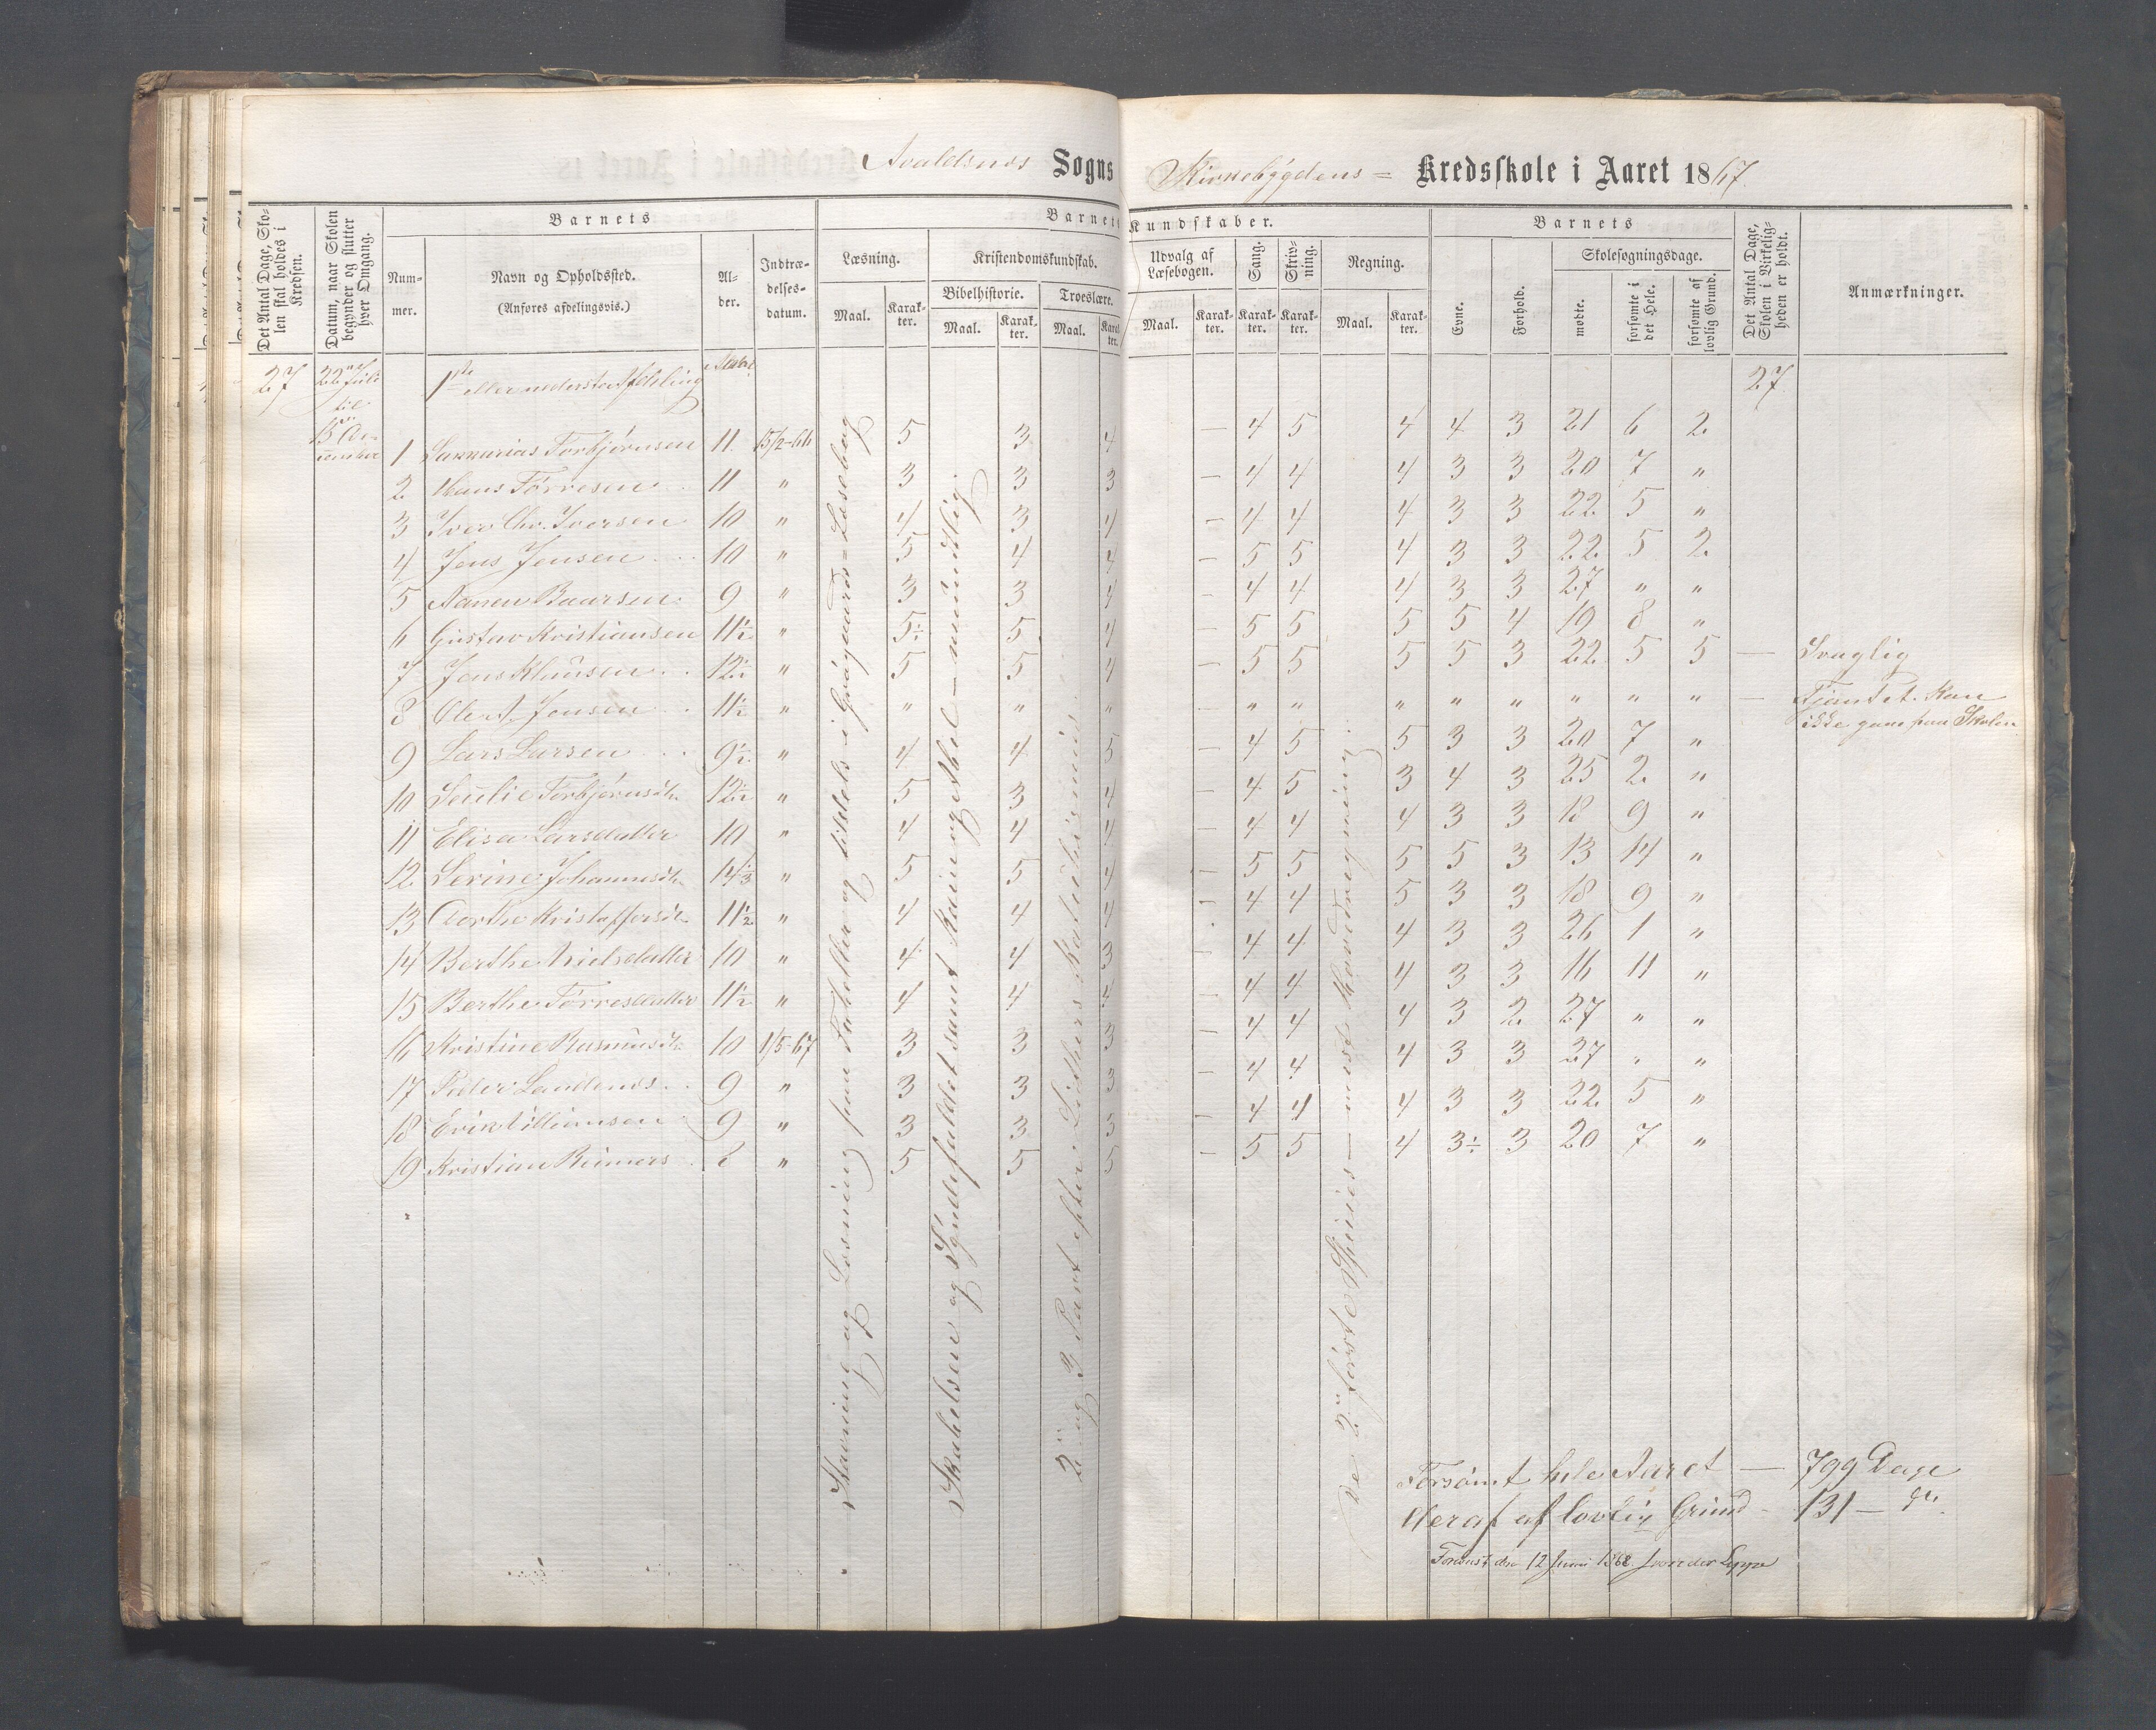 Avaldsnes Sogns Kirkebygdens = Kredsskole i Aaret 1867.
Det Antal Dage, Skolen skal holdes i Kredsen.
Datum, naar Skolen begynder og slutter hver Omgang.
Barnets
Nummer.
Navn og Opholdssted.
(Anføres afdelingsvis.)
Alder.
Indtrædelsesdatum.
Barnets Kundskaber.
Læsning.
Maal.
Karakter.
Kristendomskundskab.
Bibelhistorie.
Maal.
Karakter.
Troeslære.
Maal.
Karakter.
Udvalg af Læsebogen.
Maal.
Karakter.
Sang.
Karakter.
Skrivning.
Karakter.
Regning.
Maal.
Karakter.
Barnets
Evne.
Forhold.
Skolesøgningsdage.
mødte.
forsømte i det Hele.
forsømte af lovlig Grund.
Det Antal Dage, Skolen i Virkeligheden er holdt.
Anmærkninger.
27 22 Juli til 1ste eller nederste Afdeling 27
1 Torbjørnsen 11 15/2-66 5 3 4 – 4 5 4 4 3 21 6 2
2 Hans Tørresen 11 " 3 3 3 – 4 4 4 3 3 20 7 "
3 Iver Chr. Iversen 10 " 4 3 4 – 4 4 4 3 3 22 5 "
4 Jens Jensen 10 " 5 4 4 – 5 5 4 3 3 22 5 2
5 Baarsen 9 " 3 3 4 – 4 4 4 3 3 27 " "
6 Gustav Kristiansen 11½ " 5÷ 5 4 – 5 5 5 5 4 19 8 "
7 Jens Klausen 12½ " 5 5 4 – 5 5 5 5 3 22 5 5 — Svaglig
8 Ole A. Jensen 11½ " " " " – " " " " " " " " — Tjent. Kan
ikke gaae paa Skolen
9 Lars Larsen 9½ " 4 4 5 – 4 5 5 3 3 20 7 "
10 Torbjørnsdtr 12½ " 5 3 4 – 4 5 3 4 3 25 2 "
11 Elisa Larsdatter 10 " 4 4 4 – 4 4 4 3 3 18 9 "
12 Serine Johannesdtr 14⅓ " 5 5 4 – 5 5 5 5 3 13 14 "
13 Dorthe Kristoffersdtr 11½ " 4 4 4 – 4 4 5 3 3 18 9 "
14 Berthe Nielsdatter 10 " 4 4 3 – 4 4 4 3 3 26 1 "
15 Berthe Tørresdatter 11½ " 4 4 4 – 4 4 4 3 3 16 11 "
16 Kristine Rasmusdtr 10 1/5-67 3 3 3 – 4 4 4 3 2 27 " "
17 Peder 9 " 3 3 3 – 4 4 4 3 3 27 " "
18 Erik Villiamsen 9 " 3 3 3 – 4 4 4 3 3 22 5 "
19 Kristian Reimers 8 " 5 5 5 – 5 5 4 3÷ 3 20 7 "
Stavning og Læsning fra Forholdet og tildels i Læsebog
Skabelsen og Syndefaldet samt Kain og Abel – mundtlig.
2 og 3 Part efter Luthers Katechismus.
De 2 første Spesies – med Hovedregning.
Forsømt hele Aaret — 799 Dage
Heraf af lovlig Grund – 131 –
Foreinst den 12 Juni 1868. von der Lippe